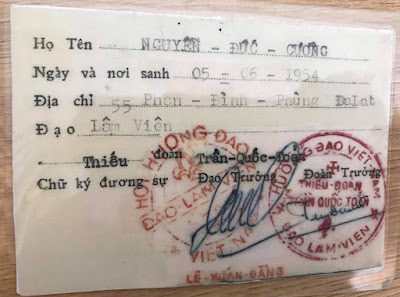 Họ Tên NGUYỄN - ĐỨC - CƯƠNG
Ngày và nơi sanh 05 - 06 - 1954
Địa chỉ 55 Phan - Đình - Phùng Đalat
Đạo Lâm Viên
Thiếu đoàn Trần-Quốc-Toản
Chữ ký đương sự Đạo Trưởng Đoàn Trưởng
HỘI HƯỚNG ĐẠO VIỆT NAM
ĐẠO LÂM VIÊN
LÊ-XUÂN-ĐẰNG
HƯỚNG ĐẠO VIỆT-NAM
THIẾU-ĐOÀN
TRẦN QUỐC TOẢN
ĐẠO LÂM-VIÊN